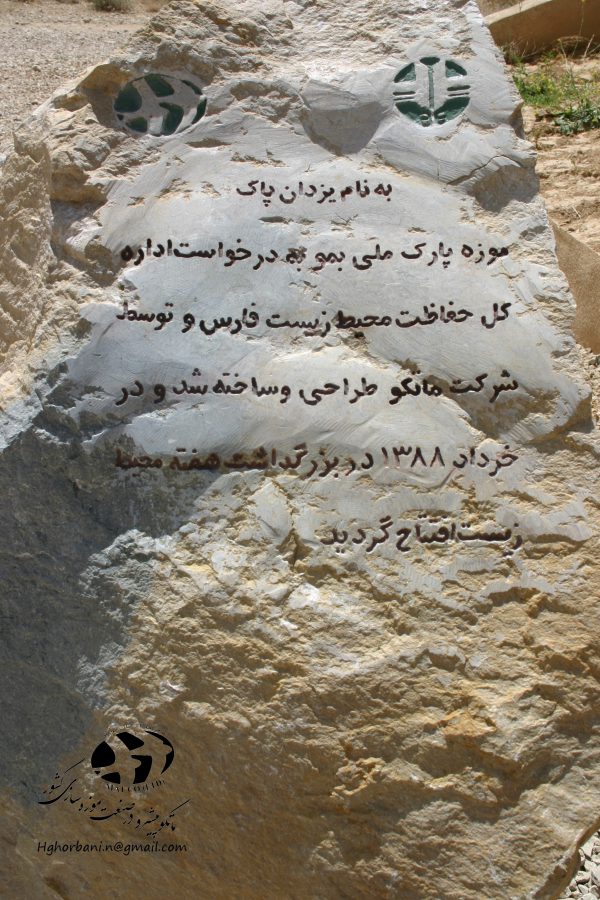 به نام یزدان پاک
موزه پارک ملی بمو به درخواست اداره
کل حفاظت محیط زیست فارس و توسط
شرکت ماتکو طراحی و ساخته شد و در
خرداد ۱۳۸۸ در بزرگداشت هفته محیط
زیست افتتاح گردید
ماتکو پیشرو در صنعت موزه سازی کشور
Hghorbani.n@gmail.com